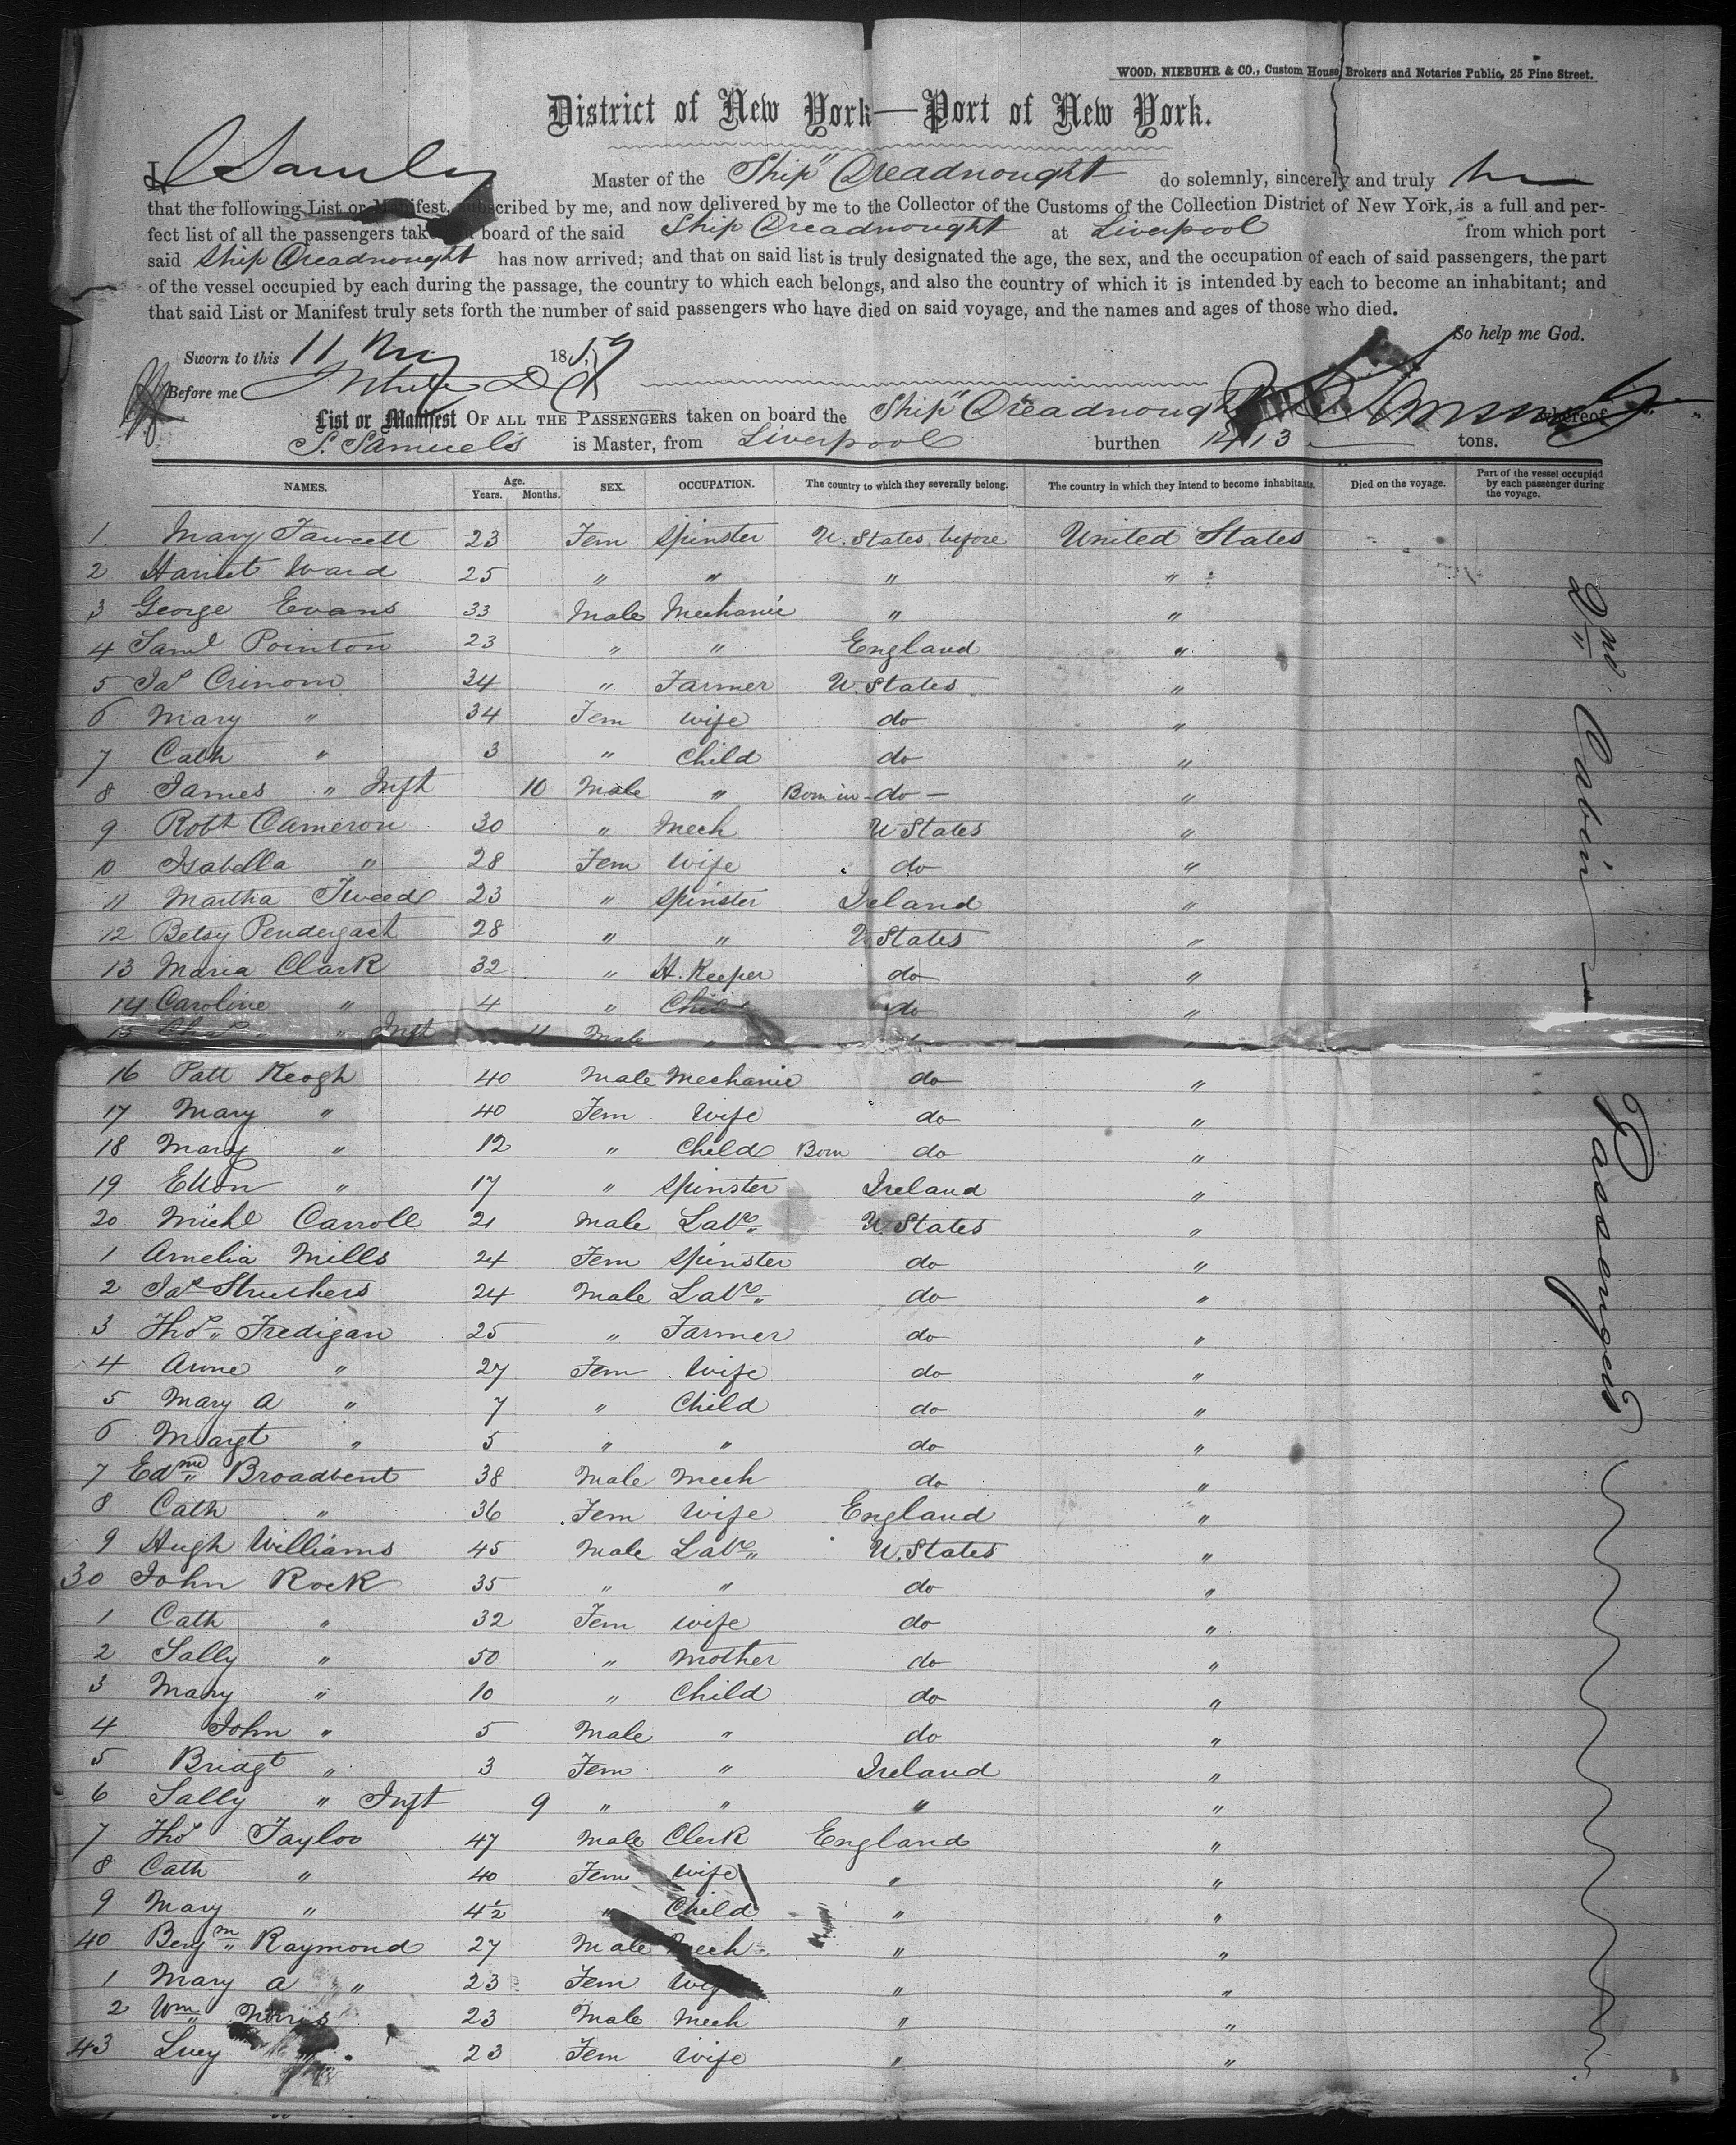 WOOD, NIEBUHR & CO., Custom House Brokers and Notaries Public, 25 Pine Street.
District of New York—Port of New York.
I, Master of the Ship "Dreadnought do solemnly, sincerely and truly
that the following List or Manifest, subscribed by me, and now delivered by me to the Collector of the Customs of the Collection District of New York, is a full and per-
fect list of all the passengers taken on board of the said Ship Dreadnought at Liverpool from which port
said Ship Dreadnought has now arrived; and that on said list is truly designated the age, the sex, and the occupation of each of said passengers, the part
of the vessel occupied by each during the passage, the country to which each belongs, and also the country of which it is intended by each to become an inhabitant; and
that said List or Manifest truly sets forth the number of said passengers who have died on said voyage, and the names and ages of those who died.
So help me God.
Sworn to this 11 1859
Before me
List or Manifest OF ALL THE PASSENGERS taken on board the Ship "Dreadnought whereof
S. Samuels is Master, from Liverpool burthen 1413 tons.
NAMES. Age. Years. Months. SEX. OCCUPATION. The country to which they severally belong. The country in which they intend to become inhabitants. Died on the voyage. Part of the vessel occupied by each passenger during the voyage.
1 Mary Fawcett 23 Fem Spinster U. States before United States
2 Harriet Ward 25 " " " "
3 George Evans 33 Male Mechanic " "
4 Saml Pointon 23 " " England "
5 Jas Crinom 34 " Farmer U. States "
6 Mary " 34 Fem Wife do "
7 Cath " 3 " Child do "
8 James " Inft 10 Male " Born in do "
9 Robt Cameron 30 " Mech U States "
10 Isabella " 28 Fem Wife do "
11 Martha Tweed 23 " Spinster Ireland "
12 Betsy Pendergast 28 " " U. States "
13 Maria Clark 32 " H. Keeper do "
14 Caroline " 4 " Child do "
15 Chas " Inft 11 Male " "
16 Patt Keogh 40 Male Mechanic do "
17 Mary " 40 Fem Wife do "
18 Mary " 12 " Child Born do "
19 Ellon " 17 " Spinster Ireland "
20 Michl Carroll 21 Male Labr U. States "
1 Amelia Mills 24 Fem Spinster do "
2 Jas Struthers 24 Male Labr do "
3 Thos Fredigan 25 " Farmer do "
4 Anne " 27 Fem Wife do "
5 Mary A " 7 " Child do "
6 Margt " 5 " " do "
7 Edmd Broadbent 38 Male Mech do "
8 Cath " 36 Fem Wife England "
9 Hugh Williams 45 Male Labr U. States "
30 John Rock 35 " " do "
1 Cath " 32 Fem Wife do "
2 Sally " 50 " Mother do "
3 Mary " 10 " Child do "
4 John " 5 Male " do "
5 Bridgt " 3 Fem " Ireland "
6 Sally " Inft 9 " " " "
7 Thos Taylor 47 Male Clerk England "
8 Cath " 40 Fem Wife " "
9 Mary " 4½ " Child " "
40 Benjmn Raymond 27 Male Mech " "
1 Mary A " 23 Fem Wife " "
2 Wm Norris 23 Male Mech " "
43 Lucy " 23 Fem Wife " "
2nd Cabin Passengers